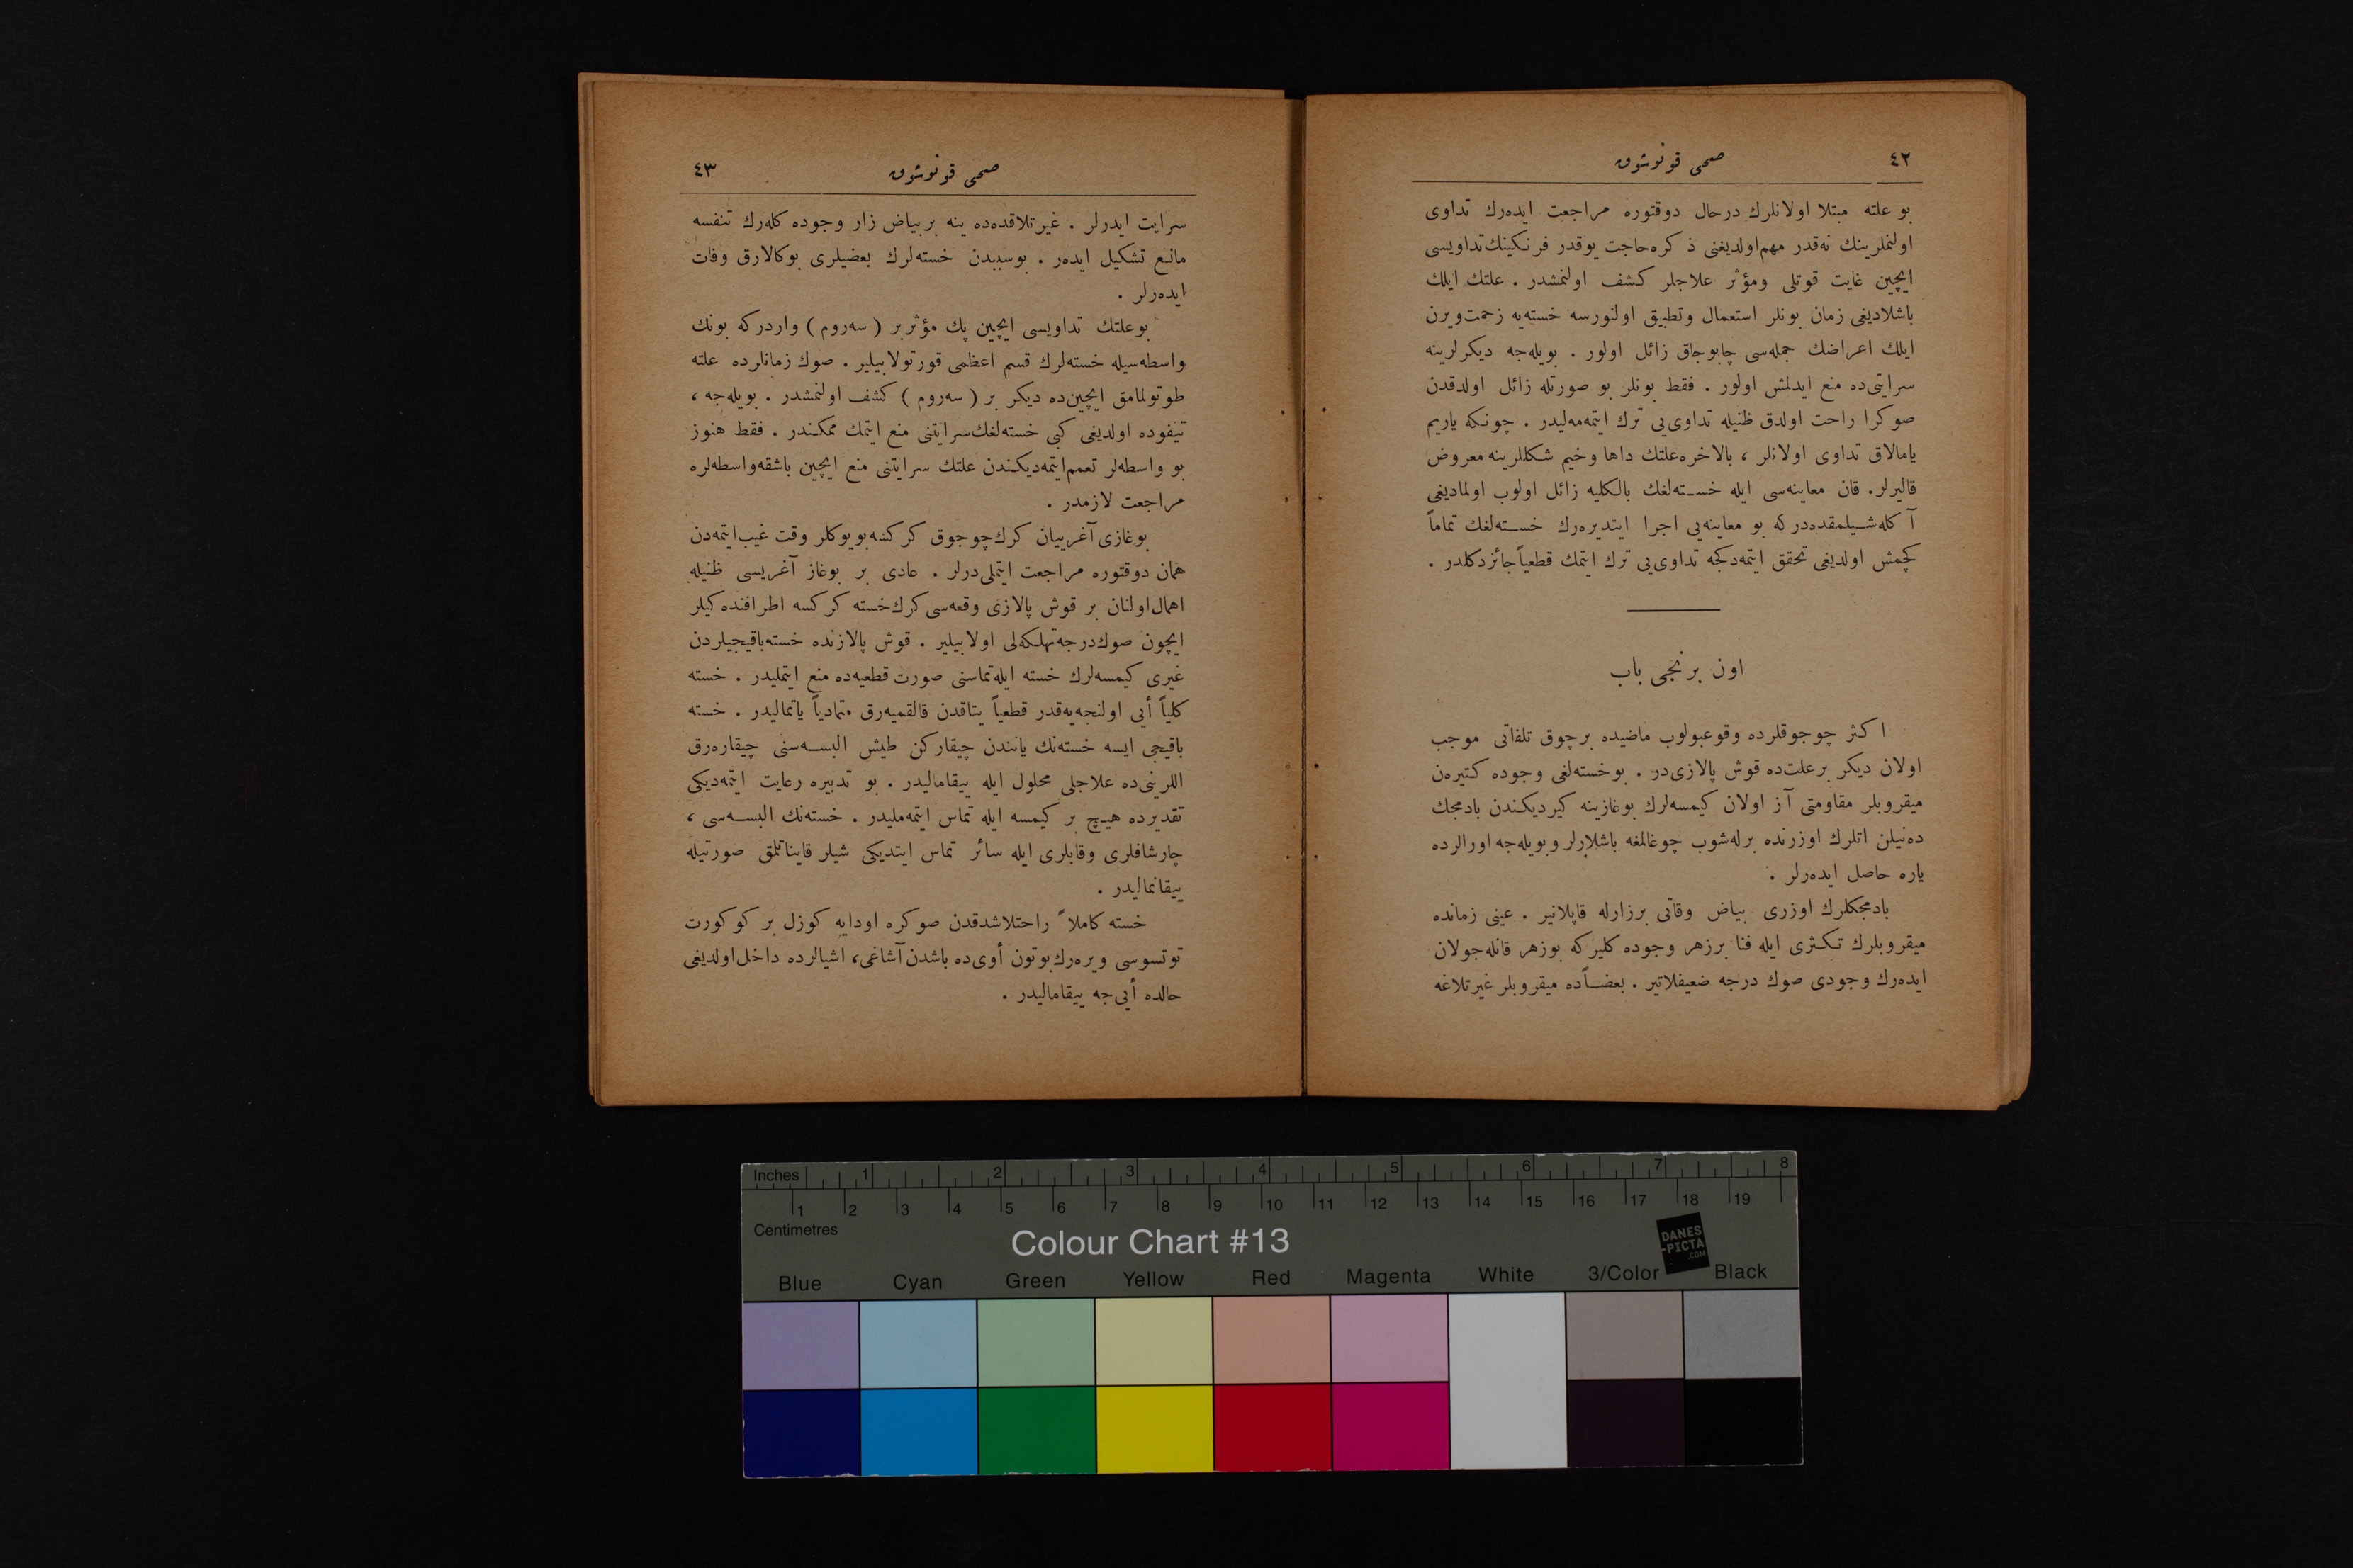 ٤٢
صحی قونوشوق
بو علته مبتلا اولانلرك درحال دوقتوره مراجعت ایده‌رك تداوی
اولنملرینك نه‌قدر مهم‌اولدیغنی ذ كره‌حاجت یوقدر فرنكینك‌تداویسی
ایچین غایت قوتلی ومؤثر علاجلر كشف اولنمشدر . علتك ایلك
باشلادیغی زمان بونلر استعمال وتطبیق اولنورسه خسته‌یه زحمت‌ویرن
ایلك اعراضك جمله‌سی چابوجاق زائل اولور . بویله‌جه دیكرلرینه
سرایتی‌ده منع ایدلمش اولور . فقط بونلر بو صورتله زائل اولدقدن
صوكرا راحت اولدق ظنیله تداوی‌یی ترك ایتمه‌مه‌لیدر . چونكه یاریم
یامالاق تداوی اولانلر ، بالاخره‌علتك داها وخیم شكللرینه معروض
قالیرلر. قان معاینه‌سی ایله خسته‌لغك بالكلیه زائل اولوب اولمادیغی
آ كله‌شیلمقده‌در كه بو معاینه‌یی اجرا ایتدیره‌رك خسته‌لغك تماماً
كچمش اولدیغی تحقق ایتمه‌دكجه تداوی‌یی ترك ایتمك قطعیاًجائزدكلدر .
اون برنجی باب
ا كثر چوجوقلرده وقوعبولوب ماضیده برچوق تلفاتی موجب
اولان دیكر برعلت‌ده قوش پالازی‌در . بوخسته‌لغی وجوده كتیره‌ن
میقروبلر مقاومتی آز اولان كیمسه‌لرك بوغازینه كیردیكندن بادمجك
ده‌نیلن اتلرك اوزرنده برله‌شوب چوغالمغه باشلارلر وبویله‌جه اورالرده
یاره حاصل ایده‌رلر .
بادمجكلرك اوزری بیاض وقاتی برزارله قاپلانیر . عینی زمانده
میقروبلرك تكثری ایله فنا برزهر وجوده كلیر كه بوزهر قانله‌جولان
ایده‌رك وجودی صوك درجه ضعیفلاتیر . بعضاًده میقروبلر غیرتلاغه
صحی قونوشوق
٤٣
سرایت ایدرلر . غیرتلاقده‌ده ینه بربیاض زار وجوده كله‌رك تنفسه
مانع تشكیل ایده‌ر . بوسببدن خسته‌لرك بعضیلری بوكالارق وفات
ایده‌رلر .
بوعلتك تداویسی ایچین پك مؤثربر ( سه‌روم ) واردركه بونك
واسطه‌سیله خسته‌لرك قسم اعظمی قورتولابیلیر . صوك زمانلرده علته
طوتولمامق ایچین‌ده دیكر بر ( سه‌روم ) كشف اولنمشدر . بویله‌جه ،
تیفوده اولدیغی كبی خسته‌لغك‌سرایتنی منع ایتمك ممكندر . فقط هنوز
بو واسطه‌لر تعمم‌ایتمه‌دیكندن علتك سرایتنی منع ایچین باشقه‌واسطه‌لره
مراجعت لازمدر .
بوغازی آغرییان كرك‌چوجوق كركسه‌بویوكلر وقت غیب‌ایتمه‌دن
همان دوقتوره مراجعت ایتملی‌درلر . عادی بر بوغاز آغریسی ظنیله
اهمال‌اولنان بر قوش پالازی وقعه‌سی كرك‌خسته كركسه اطرافنده‌كیلر
ایچون صوك‌درجه‌تهلكه‌لی اولابیلیر . قوش پالازنده خسته‌باقیجیلردن
غیری كیمسه‌لرك خسته ایله‌تماسنی صورت قطعیه‌ده منع ایتملیدر . خسته
كلیاً أیی اولنجه‌یه‌قدر قطعیاً یتاقدن قالقمیه‌رق متمادیاً یاتمالیدر . خسته
باقیجی ایسه خسته‌نك یانندن چیقاركن طیش البسه‌سنی چیقاره‌رق
اللرینی‌ده علاجلی محلول ایله ییقامالیدر . بو تدبیره رعایت ایتمه‌دیكی
تقدیرده هیچ بر كیمسه ایله تماس ایتمه‌ملیدر . خسته‌نك البسه‌سی ،
چارشافلری وقابلری ایله سائر تماس ایتدیكی شیلر قایناتلمق صورتیله
ییقانمالیدر .
خسته كاملاً راحتلاشدقدن صوكره اودایه كوزل بر كوكورت
توتسوسی ویره‌رك‌بوتون أوی‌ده باشدن‌آشاغی، اشیالرده داخل‌اولدیغی
حالده أیی‌جه ییقامالیدر .
Inches 1 2 3 4 5 6 7 8
1 2 3 4 5 6 7 8 9 10 11 12 13 14 15 16 17 18 19
Centimetres
Colour Chart #13
DANES
-PICTA
.COM
Blue Cyan Green Yellow Red Magenta White 3/Color Black